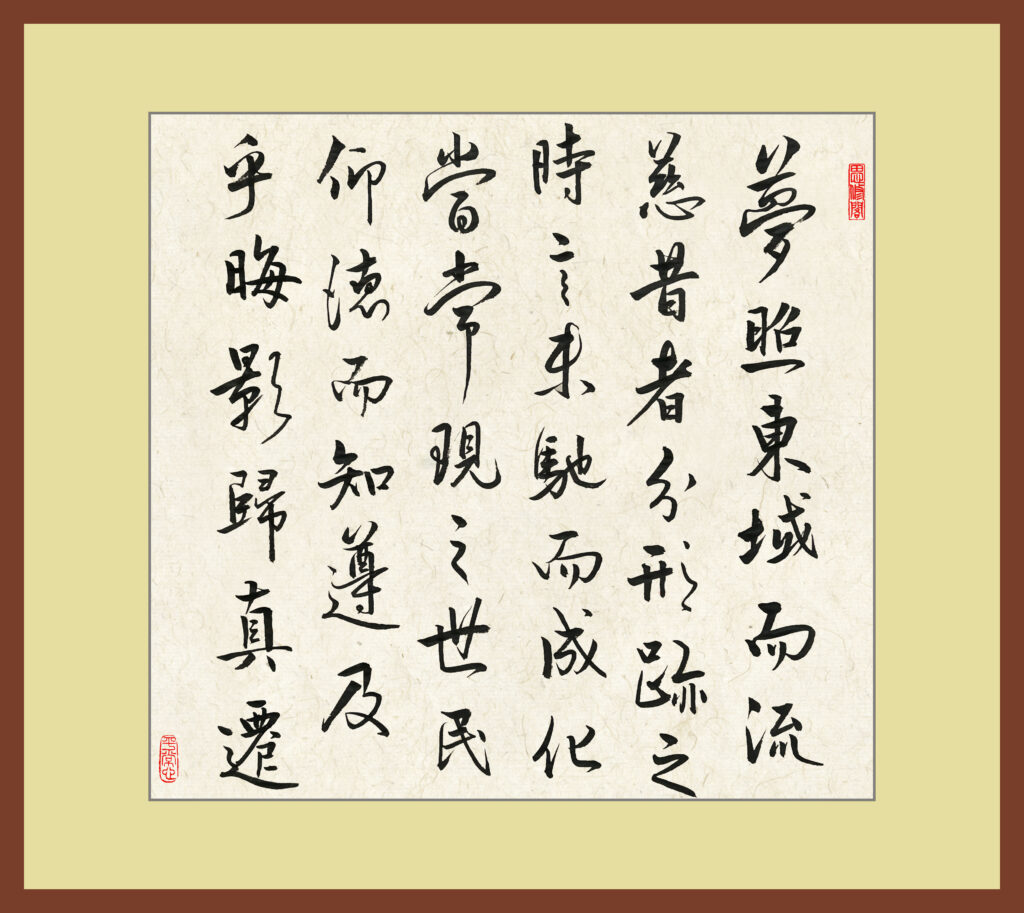 夢照東域而流
慈昔者分形跡之
時言未馳而成化
當常現之世民
仰德而知遵及
乎晦影歸真遷
平常心